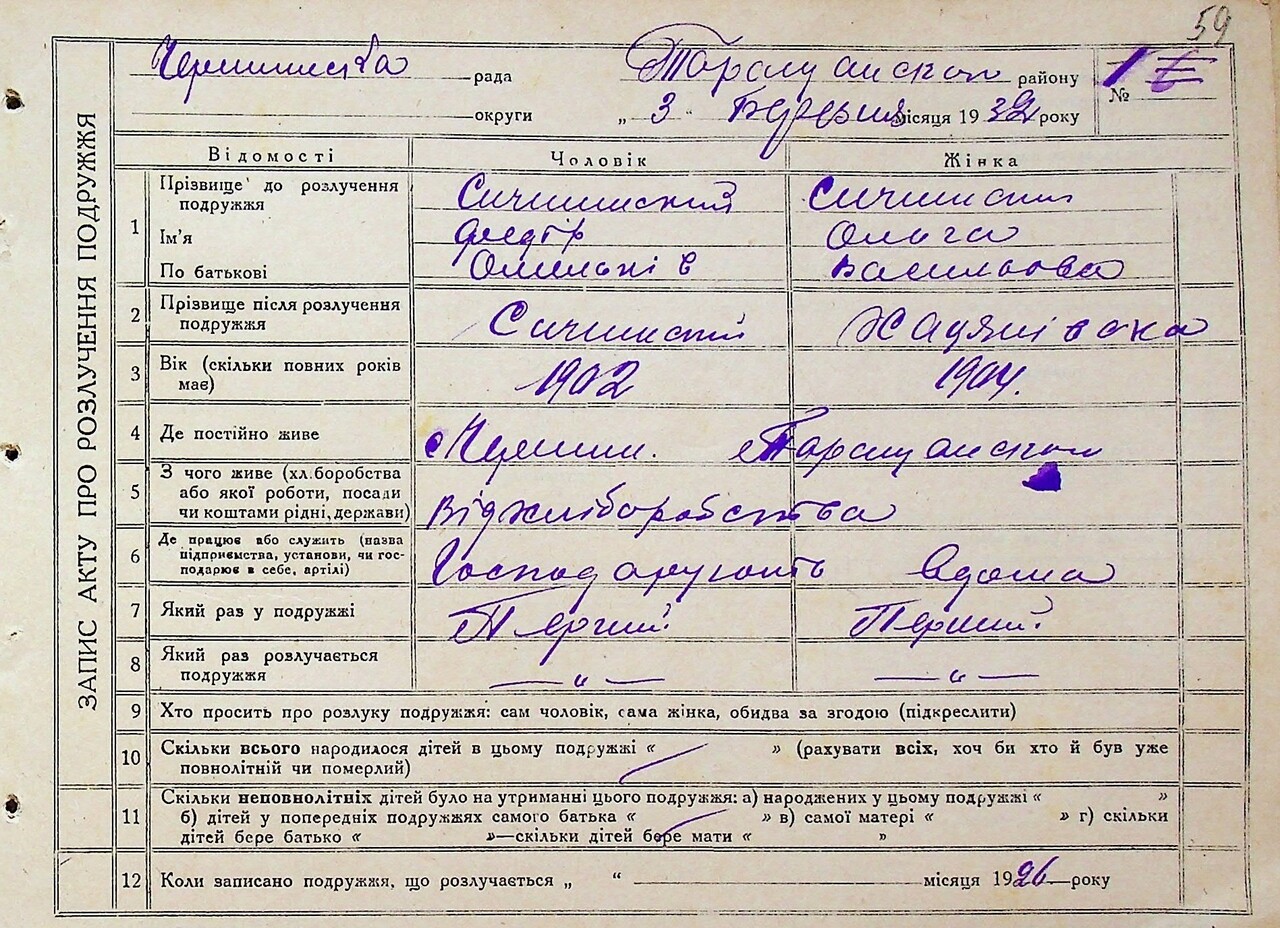 59
рада Таращанском району
№ 1
округи „ 3 " Березня місяця 1932 року
ЗАПИС АКТУ ПРО РОЗЛУЧЕННЯ ПОДРУЖЖЯ
Відомості Чоловік Жінка
1 Прізвище до розлучення подружжя Сичинский Сичинский
Ім'я Федір Ольга
По батькові Омелькі в Васильова
2 Прізвище після розлучення подружжя Сичинский
3 Вік (скільки повних років має) 1902 1904.
4 Де постійно живе Таращанском
5 З чого живе (хл.боробства
або якої роботи, посади
чи коштами рідні, держави) Від хліборобства
6 Де працює або служить (назва
підприємства, установи, чи гос-
подарює в себе, артілі) Господарують вдома
7 Який раз у подружжі Перший Перший
8 Який раз розлучається
подружжя — „ — — „ —
9 Хто просить про розлуку подружжя: сам чоловік, сама жінка, обидва за згодою (підкреслити)
10 Скільки всього народилося дітей в цьому подружжі « » (рахувати всіх, хоч би хто й був уже
повнолітній чи померлий)
11 Скільки неповнолітніх дітей було на утриманні цього подружжя: а) народжених у цьому подружжі « »
б) дітей у попередніх подружжях самого батька « » в) самої матері « » г) скільки
дітей бере батько « »—скільки дітей бере мати « »
12 Коли записано подружжя, що розлучається „ “ місяця 1926 року